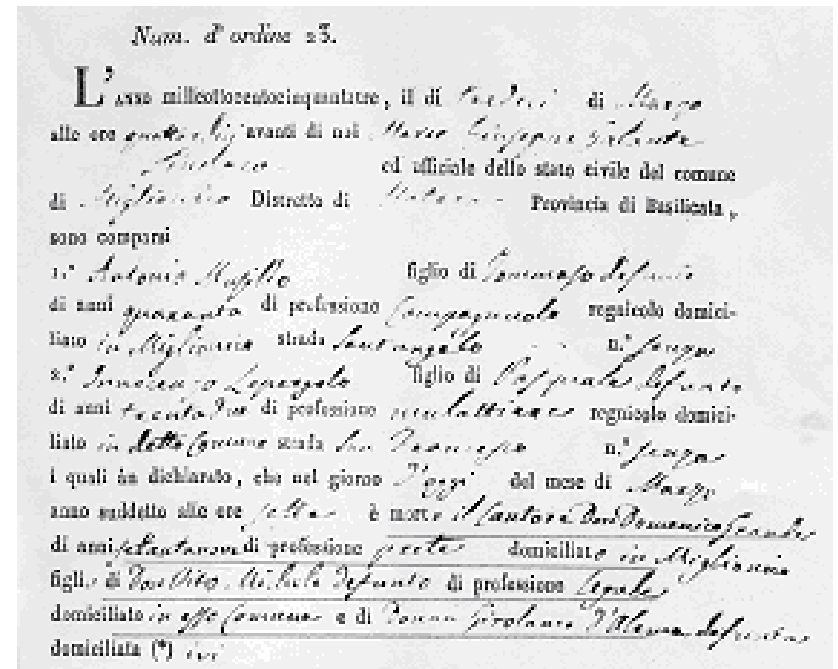 Num. d'ordine 23.
L'anno millottocentocinquantatre, il di tredici di Marzo
alle ore avanti di noi Marco Giuseppe
Sindaco ed ufficiale dello stato civile del comune
di Miglionico Distretto di Matera Provincia di Basilicata,
sono comparsi
1.° Antonio figlio di Tommaso defunto
di anni quaranta di professione Campagnuolo regnicolo domici-
liato in Miglionico strada Santangelo n.°
2.° Innocenzo figlio di Pasquale defunto
di anni trentadue di professione mulattiere regnicolo domici-
liato in detto Comune strada San Francesco n.°
i quali àn dichiarato, che nel giorno d'oggi del mese di Marzo
anno suddetto alle ore sette è morto il Cantore Don Domenico
di anni settantanove di professione prete domiciliato in Miglionico
figlio di Don Vito Michele defunto di professione legale
domiciliato in esso Comune e di Donna Girolama defunta
domiciliata (*) ivi